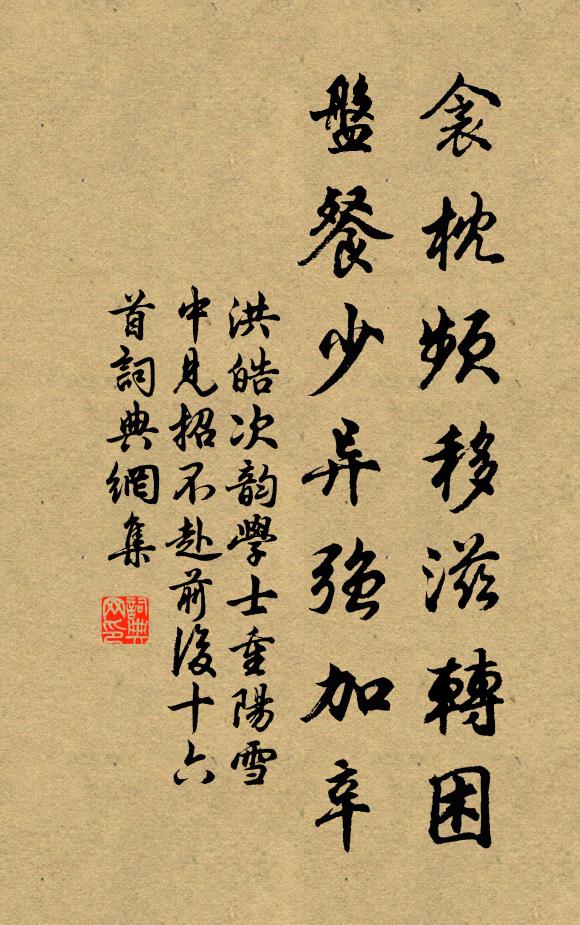 衾枕頻移滋轉困
盤餐少异強加辛
洪皓次韵學士重陽雪
中見招不赴前後十六
首詞典網集
詞典
网印